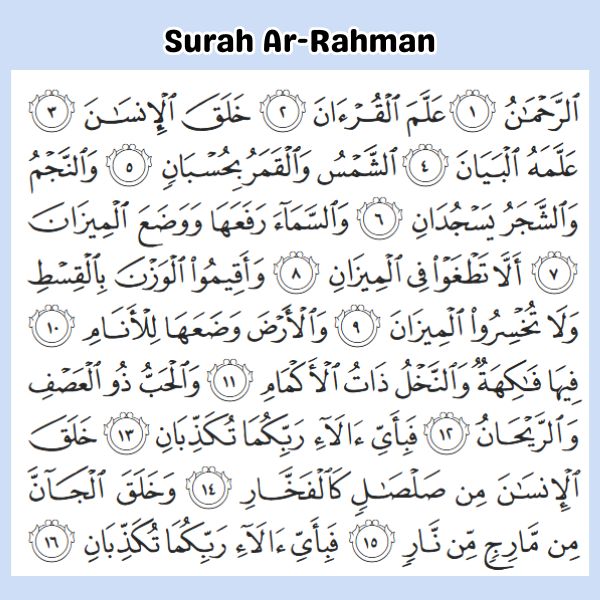 Surah Ar-Rahman
ٱلرَّحْمَـٰنُ ١ عَلَّمَ ٱلْقُرْءَانَ ٢ خَلَقَ ٱلْإِنسَـٰنَ ٣
عَلَّمَهُ ٱلْبَيَانَ ٤ ٱلشَّمْسُ وَٱلْقَمَرُ بِحُسْبَانٍ ٥ وَٱلنَّجْمُ
وَٱلشَّجَرُ يَسْجُدَانِ ٦ وَٱلسَّمَآءَ رَفَعَهَا وَوَضَعَ ٱلْمِيزَانَ
٧ أَلَّا تَطْغَوْا۟ فِى ٱلْمِيزَانِ ٨ وَأَقِيمُوا۟ ٱلْوَزْنَ بِٱلْقِسْطِ
وَلَا تُخْسِرُوا۟ ٱلْمِيزَانَ ٩ وَٱلْأَرْضَ وَضَعَهَا لِلْأَنَامِ ١٠
فِيهَا فَـٰكِهَةٌ وَٱلنَّخْلُ ذَاتُ ٱلْأَكْمَامِ ١١ وَٱلْحَبُّ ذُو ٱلْعَصْفِ
وَٱلرَّيْحَانُ ١٢ فَبِأَىِّ ءَالَآءِ رَبِّكُمَا تُكَذِّبَانِ ١٣ خَلَقَ
ٱلْإِنسَـٰنَ مِن صَلْصَـٰلٍ كَٱلْفَخَّارِ ١٤ وَخَلَقَ ٱلْجَآنَّ
مِن مَّارِجٍ مِّن نَّارٍ ١٥ فَبِأَىِّ ءَالَآءِ رَبِّكُمَا تُكَذِّبَانِ ١٦